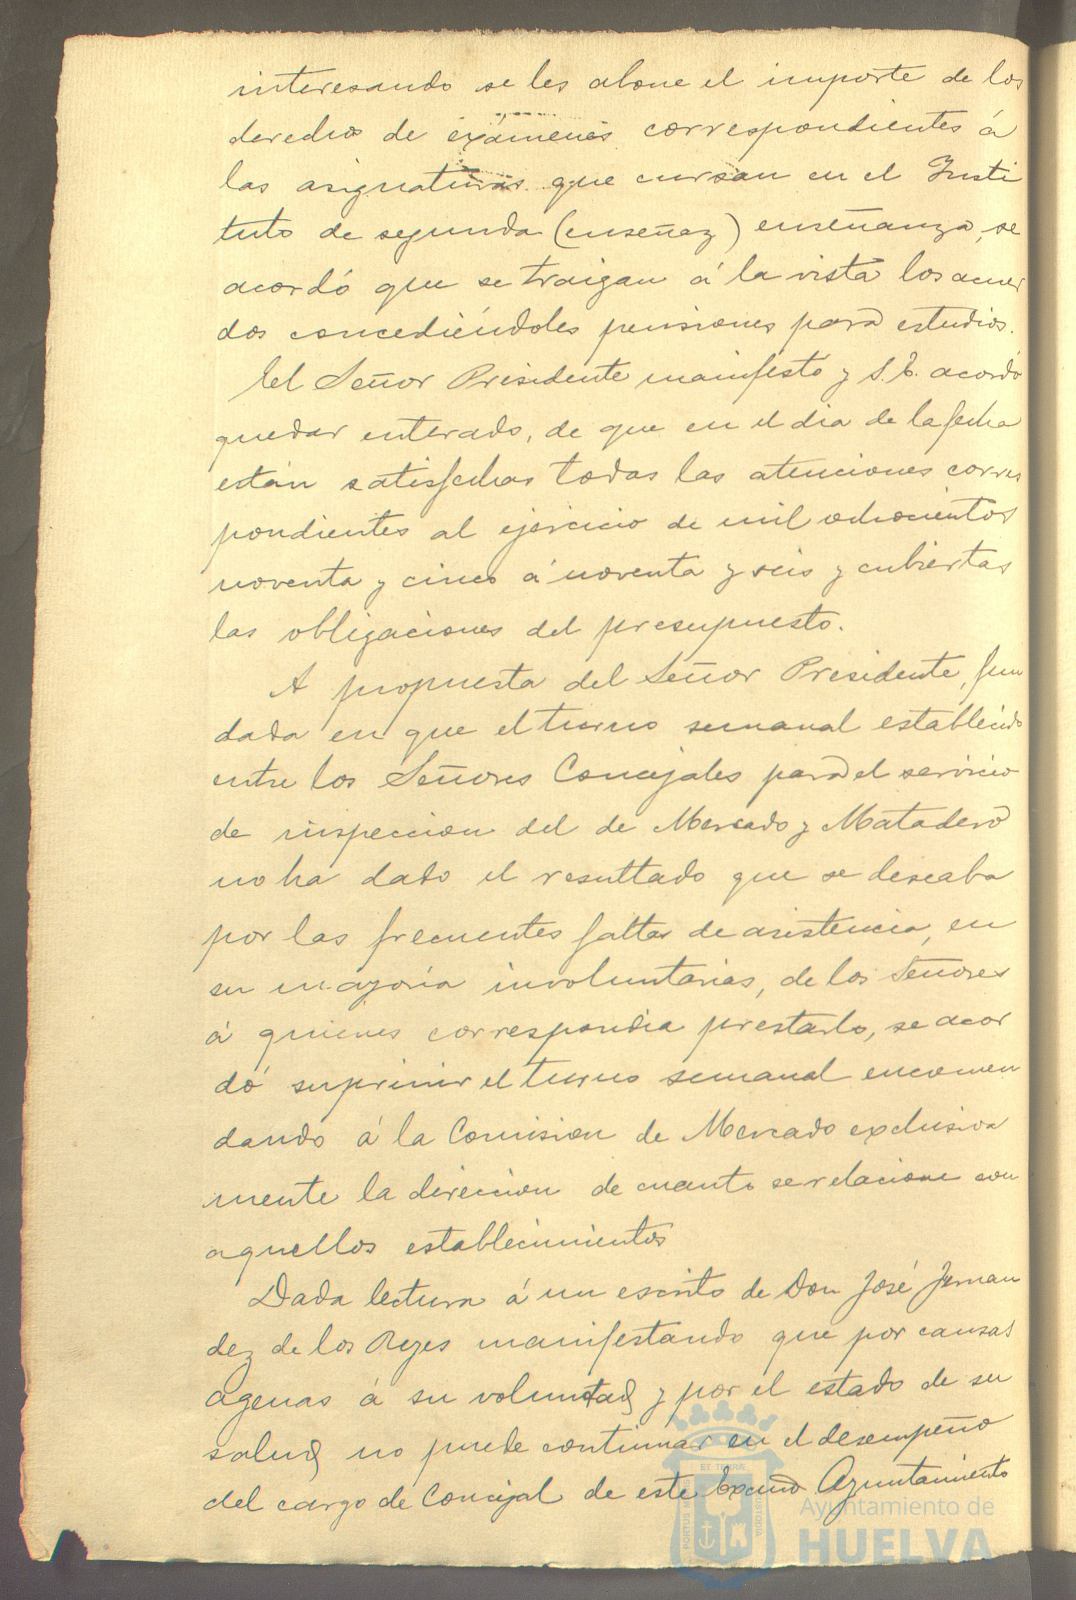 interesando se les abone el importe de los
derechos de exámenes correspondientes á
las asignaturas que cursan en el Insti
tuto de segunda (enseñez) enseñanza, se
acordó que se traigan á la vista los acuer
dos concediéndoles pensiones para estudios.
El Señor Presidente manifestó y S. E. acordó
quedar enterado, de que en el dia de la fecha
están satisfechas todas las atenciones corres
pondientes al ejercicio de mil ochocientos
noventa y cinco á noventa y seis y cubiertas
las obligaciones del presupuesto.
A propuesta del Señor Presidente, fun
dada en que el turno semanal establecido
entre los Señores Concejales para el servicio
de inspeccion del de Mercado y Matadero
no ha dado el resultado que se deseaba
por las frecuentes faltas de asistencia, en
su mayoría involuntarias, de los Señores
á quienes correspondia prestarlo, se acor
dó suprimir el turno semanal encomen
dando á la Comision de Mercado exclusiva
mente la direccion de cuanto se relacione con
aquellos establecimientos
Dada lectura á un escrito de Don José Fernan
dez de los Reyes manifestando que por causas
agenas á su voluntad y por el estado de su
salud no puede continuar en el desempeño
del cargo de Concejal de este Excmo Ayuntamiento
Ayuntamiento de
HUELVA